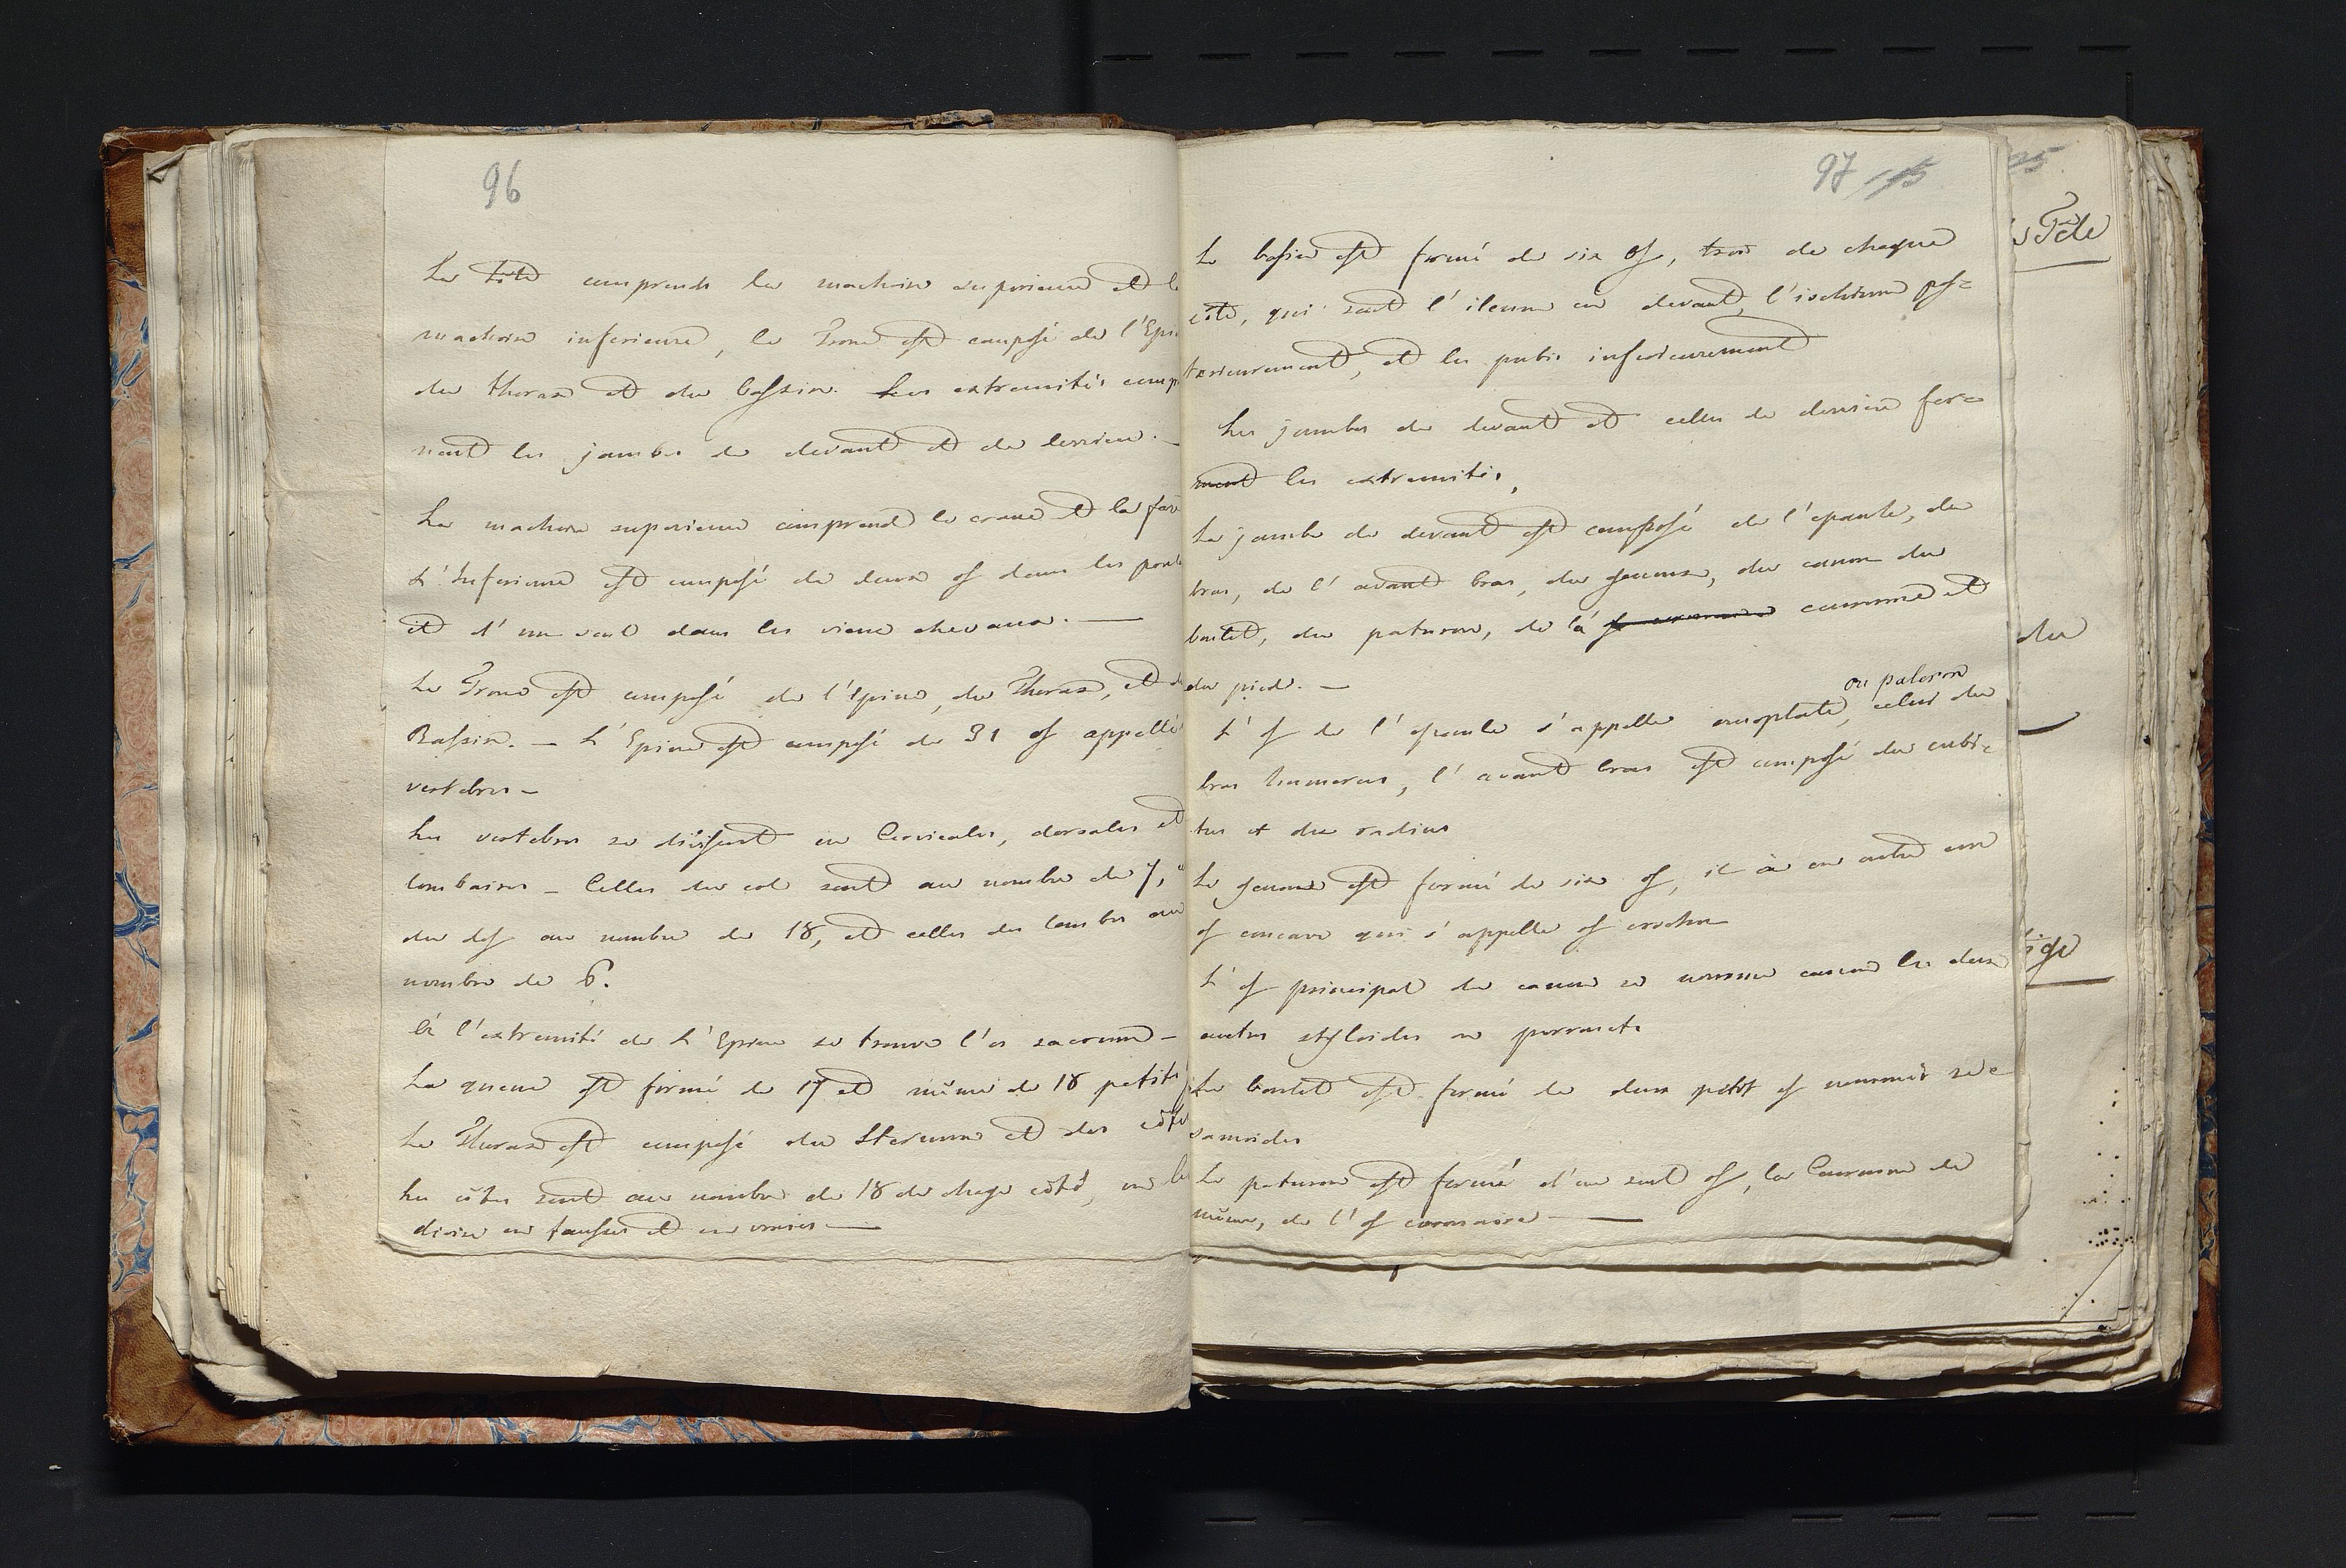 96
La tête comprends la machoire superieure et l
machoire inferieure, le Tronc est composé de l'Epi
du thorax et du bassin. Les extremités comp
nent les jambes de devant et de derriere. —
La machoire superieure comprend le crane et la fac
L'Inferieure est composé de deux os dans les poul
et d'un seul dans les vieux chevaux. —
Le Tronc est composé de l'Epine, du Thorax, et d
Bassin. — L'Epine est composé de 31 os appellé
vertebres —
Les vertebres se divisent en Cervicales, dorsales et
lombaires — Celles du col sont au nombre de 7,
du dos au nombre de 18, et celles des lombes au
nombre de 6.
à l'extremité de L'Epine se trouve l'os sacrum —
La queue est formé de 17 et même de 18 petits
Le Thorax est composé du Sternum et des côte
Les côtes sont au nombre de 18 de chaqe côté, on les
divise en fausses et en vraies —
97 115
Le bassin est formé de six os, trois de chaque
côté, qui sont l'ileum en devant, l'ischium pos=
terieurement, et les pubis inferieurement
Les jambes de devant et celles de derriere for=
ment les extremités,
La jambe de devant est composé de l'epaule, du
bras, de l'avant bras, du genoux, du canon du
boulet, du paturon, de la couronne et
du pied. —
ou paleron
L'os de l'epaule s'appelle omoplate, celui du
bras humerus, l'avant bras est composé du cubi=
tus et du radius
Le genoux est formé de six os, il a en outre un
os concave qui s'appelle os crochu
L'os principal du canon se nomme canon les deux
autres styloides ou perronets
Le boulet est formé de deux petit os nommés se=
samoides
Le paturon est formé d'un seul os, la Couronne de
même, de l'os coronaire —
25
s Tête
du
ige